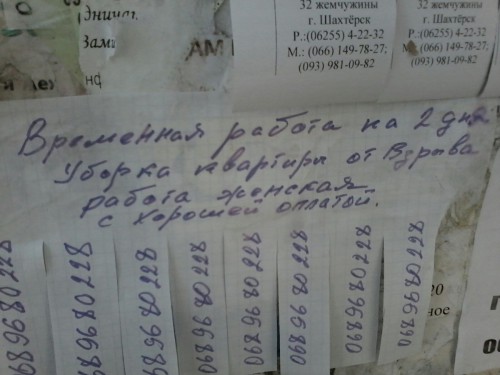 32 жемчужины
г. Шахтёрск
Р.:(06255) 4-22-32
М.: (066) 149-78-27;
(093) 981-09-82
32 жемчужины
г. Шахтёрск
Р.:(06255) 4-22-32
М.: (066) 149-78-27;
(093) 981-09-82
АМ
Временная работа на 2 дня
Уборка квартиры от Взрыва
работа женская
с хорошей оплатой.
0689680228
0689680228
0689680228
0689680228
0689680228
0689680228
0689680228
0689680228
20
ное